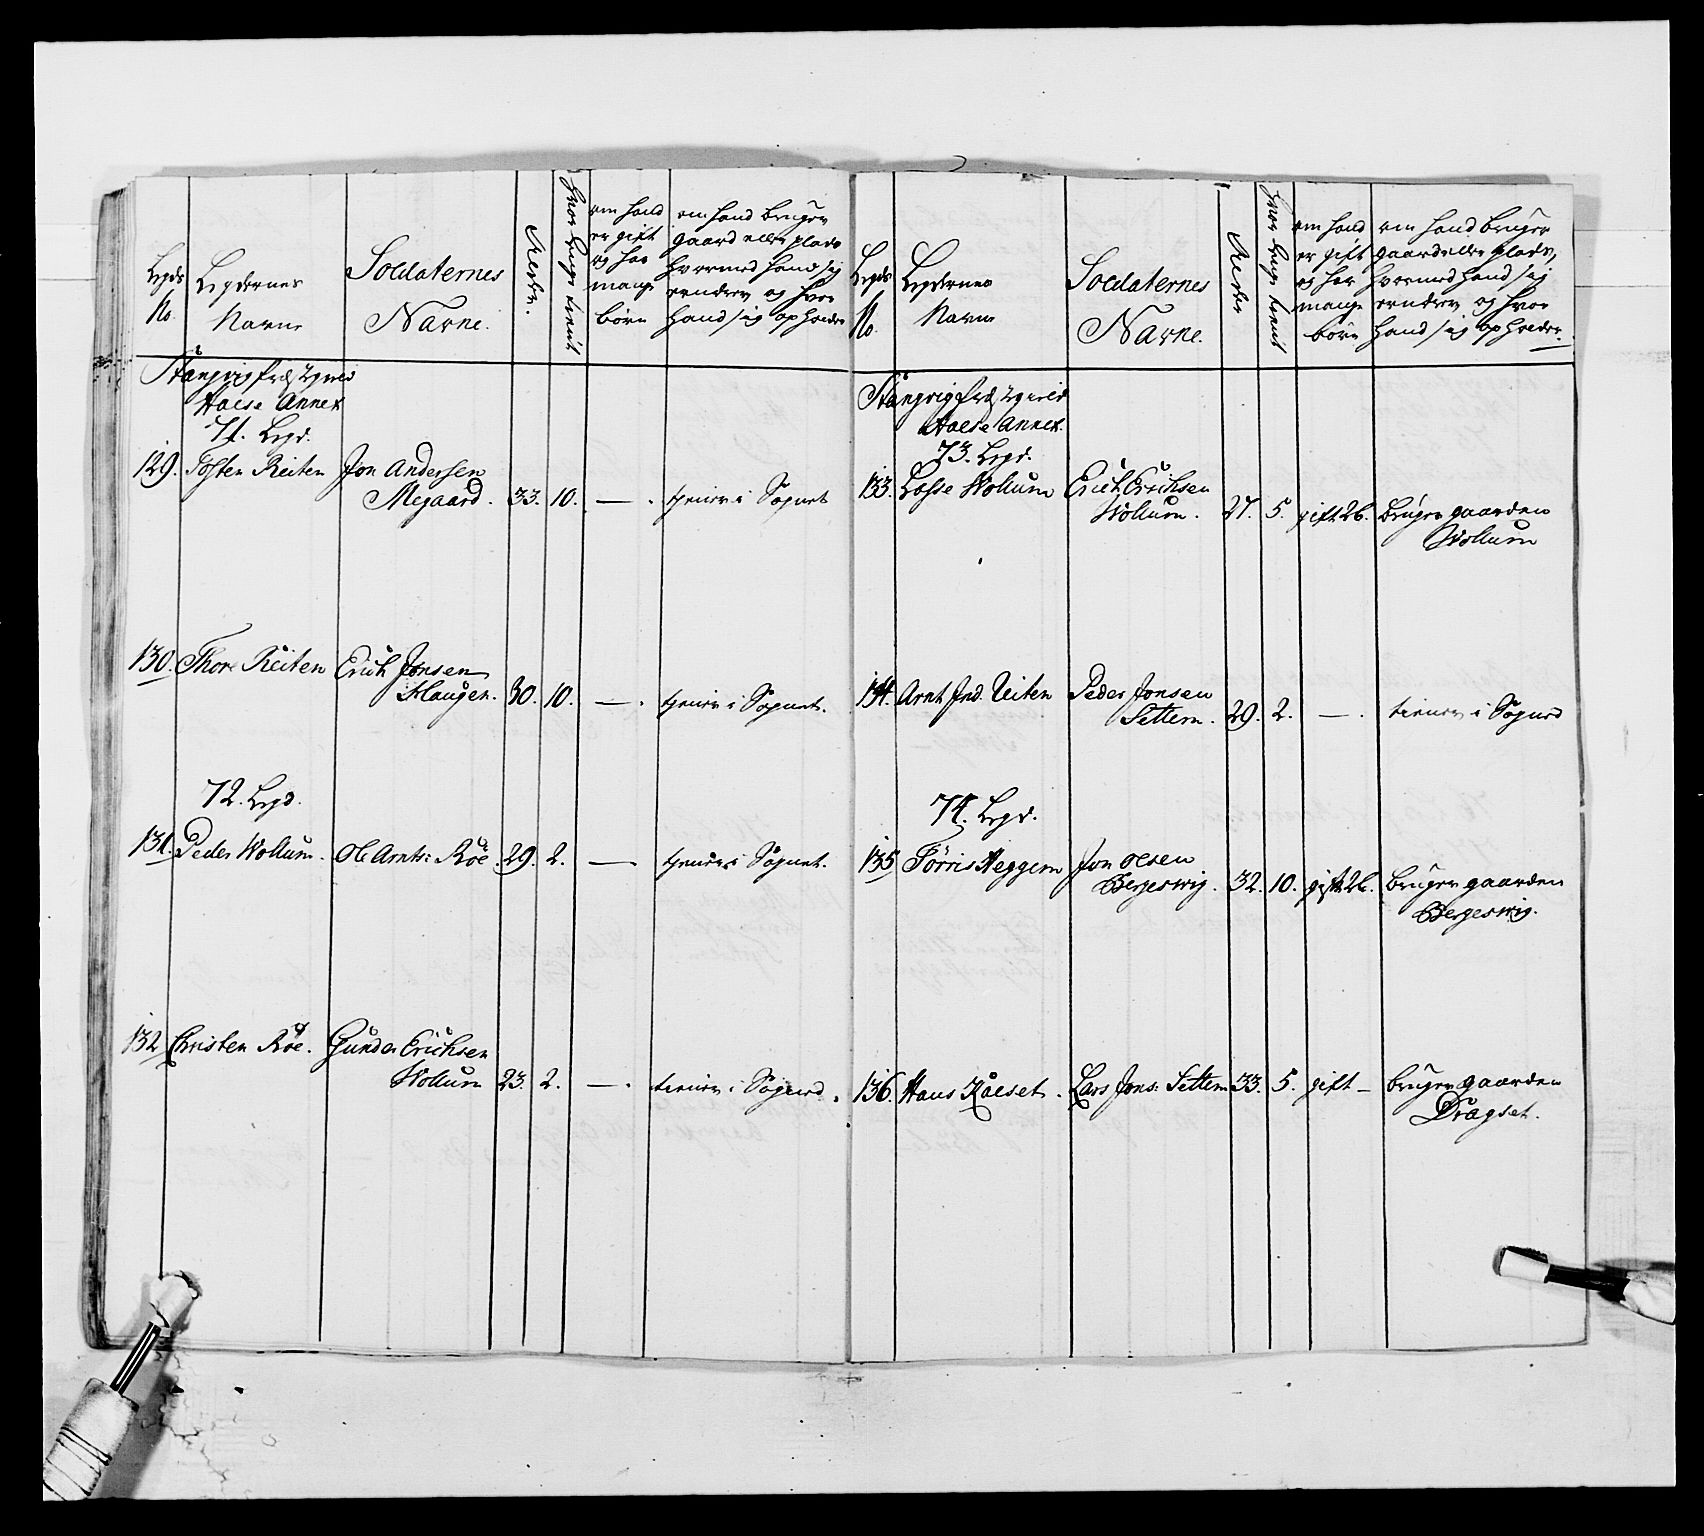 Legds No.
Legdernes Navne
Soldaternes Navne.
Alder.
hvor lenge tient
om hand er gift og har mange börn
om hand bruger gaard eller plads hvormed hand sig ernærer og hvor hand sig opholder
Stangvig Præstegield
Aasse Annex
71. Legd.
129. Tosten Reiten Jon Andersen
Megaard. 33. 10. — . tjener i Sognet
130. Thore Reiten Erich Jonsen
Haugen. 30. 10. — . tjener i Sognet.
72. Legd.
131. Peder Wollum. Ole Arnts: Röe. 29. 2. — tjener i Sognet.
132 Christen Röe. Gunder Erichsen
Wollum 23. 2. — . tiener i Sognet.
Legds No.
Legdernes Navne
Soldaternes Navne.
Alder
hvor lenge tient
om hand er gift og har mange börn
om hand bruger gaard eller plads, hvormed hand sig ernærer og hvor hand sig opholder.
Stangvig Præstegield
Aasse Annex.
73. Legd.
133. Lasse Wollum Erich Erichsen
Wollum. 27. 5. gift 2 b. bruger gaarden
Wollum
134. Arnt Reiten Peder Jonsen
Settem. 29. 2. — . tiener i Sognet
74. Legd.
135 Törris Heggem Jon Olsen
Bergeswig. 32. 10. gift 2 b. bruger gaarden
Bergeswig.
136. Hans Kaaset. Lars Jons: Settem 33. 5. gift — bruger gaarden
Dragset.